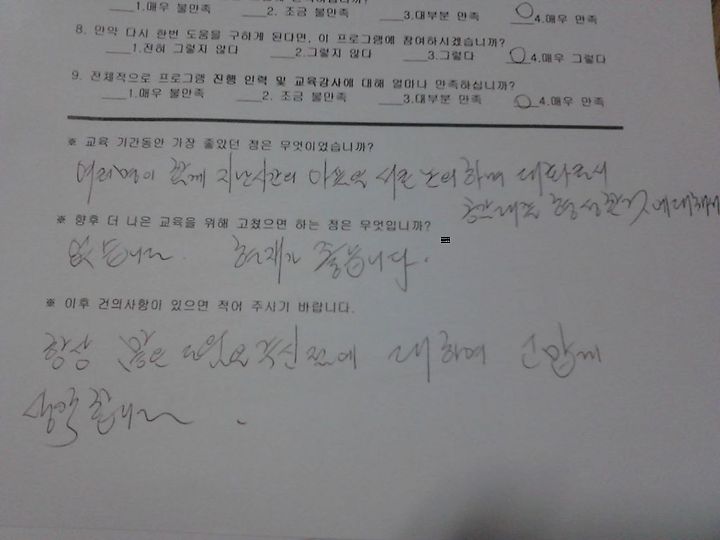 ___1.매우 불만족 ___2. 조금 불만족 ___3.대부분 만족 ___4.매우 만족
8. 만약 다시 한번 도움을 구하게 된다면, 이 프로그램에 참여하시겠습니까?
___1.전혀 그렇지 않다 ___2.그렇지 않다 ___3.그렇다 ___4.매우 그렇다
9. 전체적으로 프로그램 진행 인력 및 교육강사에 대해 얼마나 만족하십니까?
___1.매우 불만족 ___2. 조금 불만족 ___3.대부분 만족 ___4.매우 만족
※ 교육 기간동안 가장 좋았던 점은 무엇이었습니까?
여러명이 함께 지난시간의 서로 논의하며
공감대를 형성한것에 대해서
※ 향후 더 나은 교육을 위해 고쳤으면 하는 점은 무엇입니까?
없습니다. 현재가 좋습니다.
※ 이후 건의사항이 있으면 적어 주시기 바랍니다.
항상 대하여 고맙게
생각합니다.